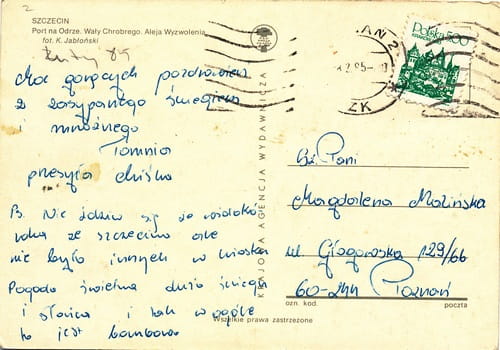 2
SZCZECIN
Port na Odrze. Wały Chrobrego. Aleja Wyzwolenia
fot. K. Jabłoński
Luty 85
Moc gorących pozdrowień
z zasypanego śniegiem
i mroźnego
przesyła Miśka
Ps. Nie dziw się że widokówka
ze szczecina ale
nie było innych w kiosku
Pogoda świetna dużo śniegu
i słońca i tak w ogóle
to jest bombowo
KRAJOWA AGENCJA WYDAWNICZA
Polska 500
2.85
ZK
Sz. Pani
Magdalena Malińska
ul. Głogowska 129/66
60-244 Poznań
ozn. kod. poczta
Wszelkie prawa zastrzeżone